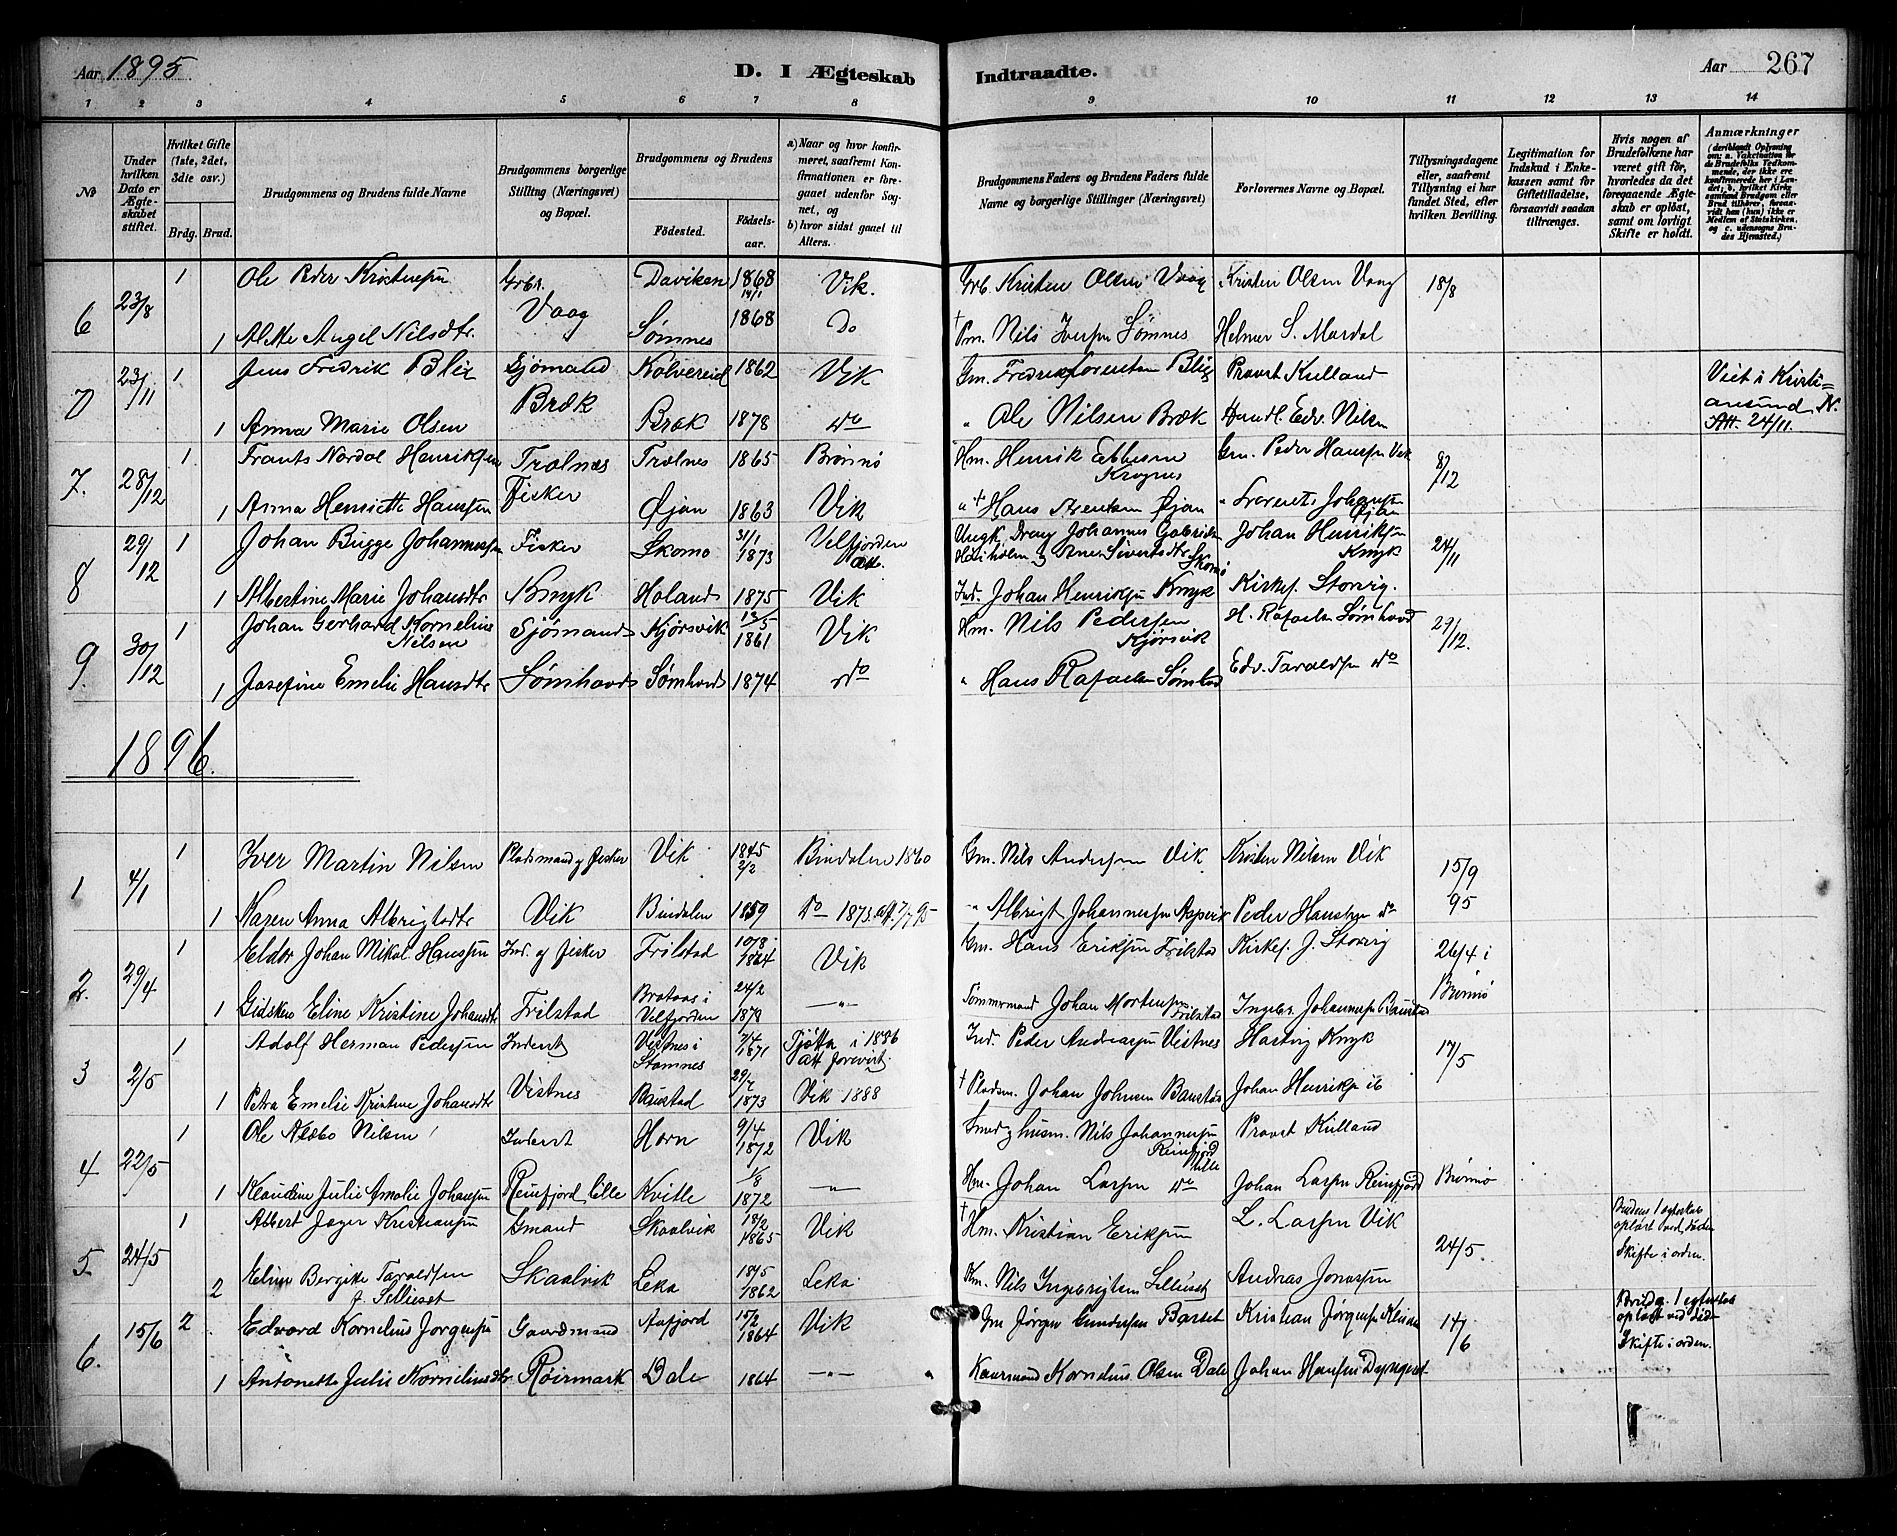 Aar 1895
D. I Ægteskab Indtraadte.
Aar 267
1 2 3 4 5 6 7 8 9 10 11 12 13 14
No
Under hvilken Dato er Ægteskabet stiftet.
Hvilket Gifte (1ste, 2det, 3die osv.)
Brdg. Brud.
Brudgommens og Brudens fulde Navne
Brudgommens borgerlige Stilling (Næringsvei) og Bopæl.
Brudgommens og Brudens
Födested. Födselsaar.
a) Naar og hvor konfirmeret, saafremt Konfirmationen er foregaaet udenfor Sognet, og
b) hvor sidst gaaet til Alters.
Brudgommens Faders og Brudens Faders fulde Navne og borgerlige Stillinger (Næringsvei)
Forlovernes Navne og Bopæl.
Tillysningsdagene eller, saafremt Tillysning ei har fundet Sted, efter hvilken Bevilling.
Legitimation for Indskud i Enkekassen samt for Giftetilladelse, forsaavidt saadan tiltrænges.
Hvis nogen af Brudefolkene har været gift för, hvorledes da det foregaaende Ægteskab er oplöst, samt om lovligt Skifte er holdt.
Anmærkninger
6 23/8 1 Ole Peder Kristensen Grbr. Vaag Daviken 1868 Vik. Grb. Kristen Olsen Vaag Kristen Olsen Vaag 18/8
1 Alette Angel Nilsdtr. Sømnes 14/1 1868 Do † Pm. Nils Iversen Sømnes Helmer S. Mardal
7 23/11 1 Jens Fredrik Blix Sjømand Bræk Kolvereid 1862 Vik Gm. Fredrik Lorentsen Blix Provst Kulland Viet i Kristiansund N. Att. 24/11.
1 Anna Marie Olsen Bræk 1878 do " Ole Nilsen Bræk Handl. Edv. Nilsen
7. 28/12 1 Frants Nordal Henriksen Trælnes Fisker Trælnes 1865 Brønnø Hm. Henrik Ebbesen Krognes Gm. Peder Hansen Vik 8/12
1 Anna Henriette Hanssen Øjan 1863 Vik " † Hans Arentsen Øjan Lorents Johansen Øjan
8 29/12 1 Johan Bugge Johannessen Fisker Knyk Skomo 31/1 1873 Velfjorden Att. Ungk. Dreng Johannes Gabrielsen Johan Henriksen Knyk 24/11
1 Albertine Marie Johansdtr Holand 1875 Vik Ind. Johan Henriksen Knyk Kirkes. Storvig.
9. 30/12 1 Johan Gerhard Kornelius Nilsen Sjømand Sømhovd Kjørsvik 13/5 1861 Vik Hm. Nils Pedersen Kjørsvik H. Rafaelsen Sømhovd 29/12.
1 Josefine Emelie Hansdtr Sømhovd 1874 do " Hans Rafaelsen Sømhovd Edv. Taraldsen do
1896.
1 4/1 1 Iver Martin Nilsen Pladsmand og fisker Vik Vik 1845 2/2 Bindalen 1860 Gm. Nils Andersen Vik Kristen Nilsen Vik 15/9 95
1 Karen Anna Albrigtsdtr Bindalen 1859 do 1873. att. 7/7 95 " Albrigt Johannesen Aspvik Peder Hansen do
2. 29/4 1 Eldor Johan Mikal Hanssen Ind. og fisker Frilstad Frilstad 10/8 1864 Vik Gm. Hans Eriksen Frilstad Kirkes. J. Storvig 26/4 i Brønnø
1 Gidsken Eline Kristine Johansdtr Brataas i Velfjorden 24/2 1878 — " — Tømmermand Johan Mortensen Frilstad Ingebr. Johannesen Baustad
3 2/5 1 Adolf Herman Pedersen Inderst Vistnes Vistnes i Stamnes 7/4 1871 Tjøtta i 1886 att. forevist Ind. Peder Andreasen Vistnes Hartvig Knyk 17/5
1 Petra Emelie Kristine Johansdtr Baustad 29/7 1873 Vik 1888 † Pladsm. Johan Johnsen Baustad Johan Henriksen ib
4 22/5 1 Ole Klæbo Nilsen Inderst Reinfjord lille Horn 9/4 1872 Vik Smed og husm. Nils Johannessen Reinfjord lille Provst Kulland Brønnø
1 Klaudine Julie Amalie Johansen Kville 1/8 1872 — " — Hm. Johan Larsen do Johan Larsen Reinfjord
5 24/5 1 Albert Jæger Kristiansen Gmand Skaalvik Skaalvik 18/2 1865 Vik † Hm. Kristian Eriksen L. Larsen Vik 24/5. Brudens 1 egteskab opløst ved Døden Skifte i orden.
2 Eline Bergitte Taraldsen f. Sellieset Leka 18/5 1862 Leka. Km. Nils Ingebrigtsen Sellieset Andreas Jonassen
6. 15/6 2 Edvard Kornelius Jørgensen Gaardmand Røirmark Aafjord 15/2 1864 Vik Gm Jørgen Gundersen Barset Kristian Jørgensen 14/6 Brudg. 1 egteskab opløst ved Død Skifte i orden.
1 Antonette Julie Kornelinsdtr. Dale 1864 — " — Kaarmand Kornelius Olsen Dale Johan Hansen